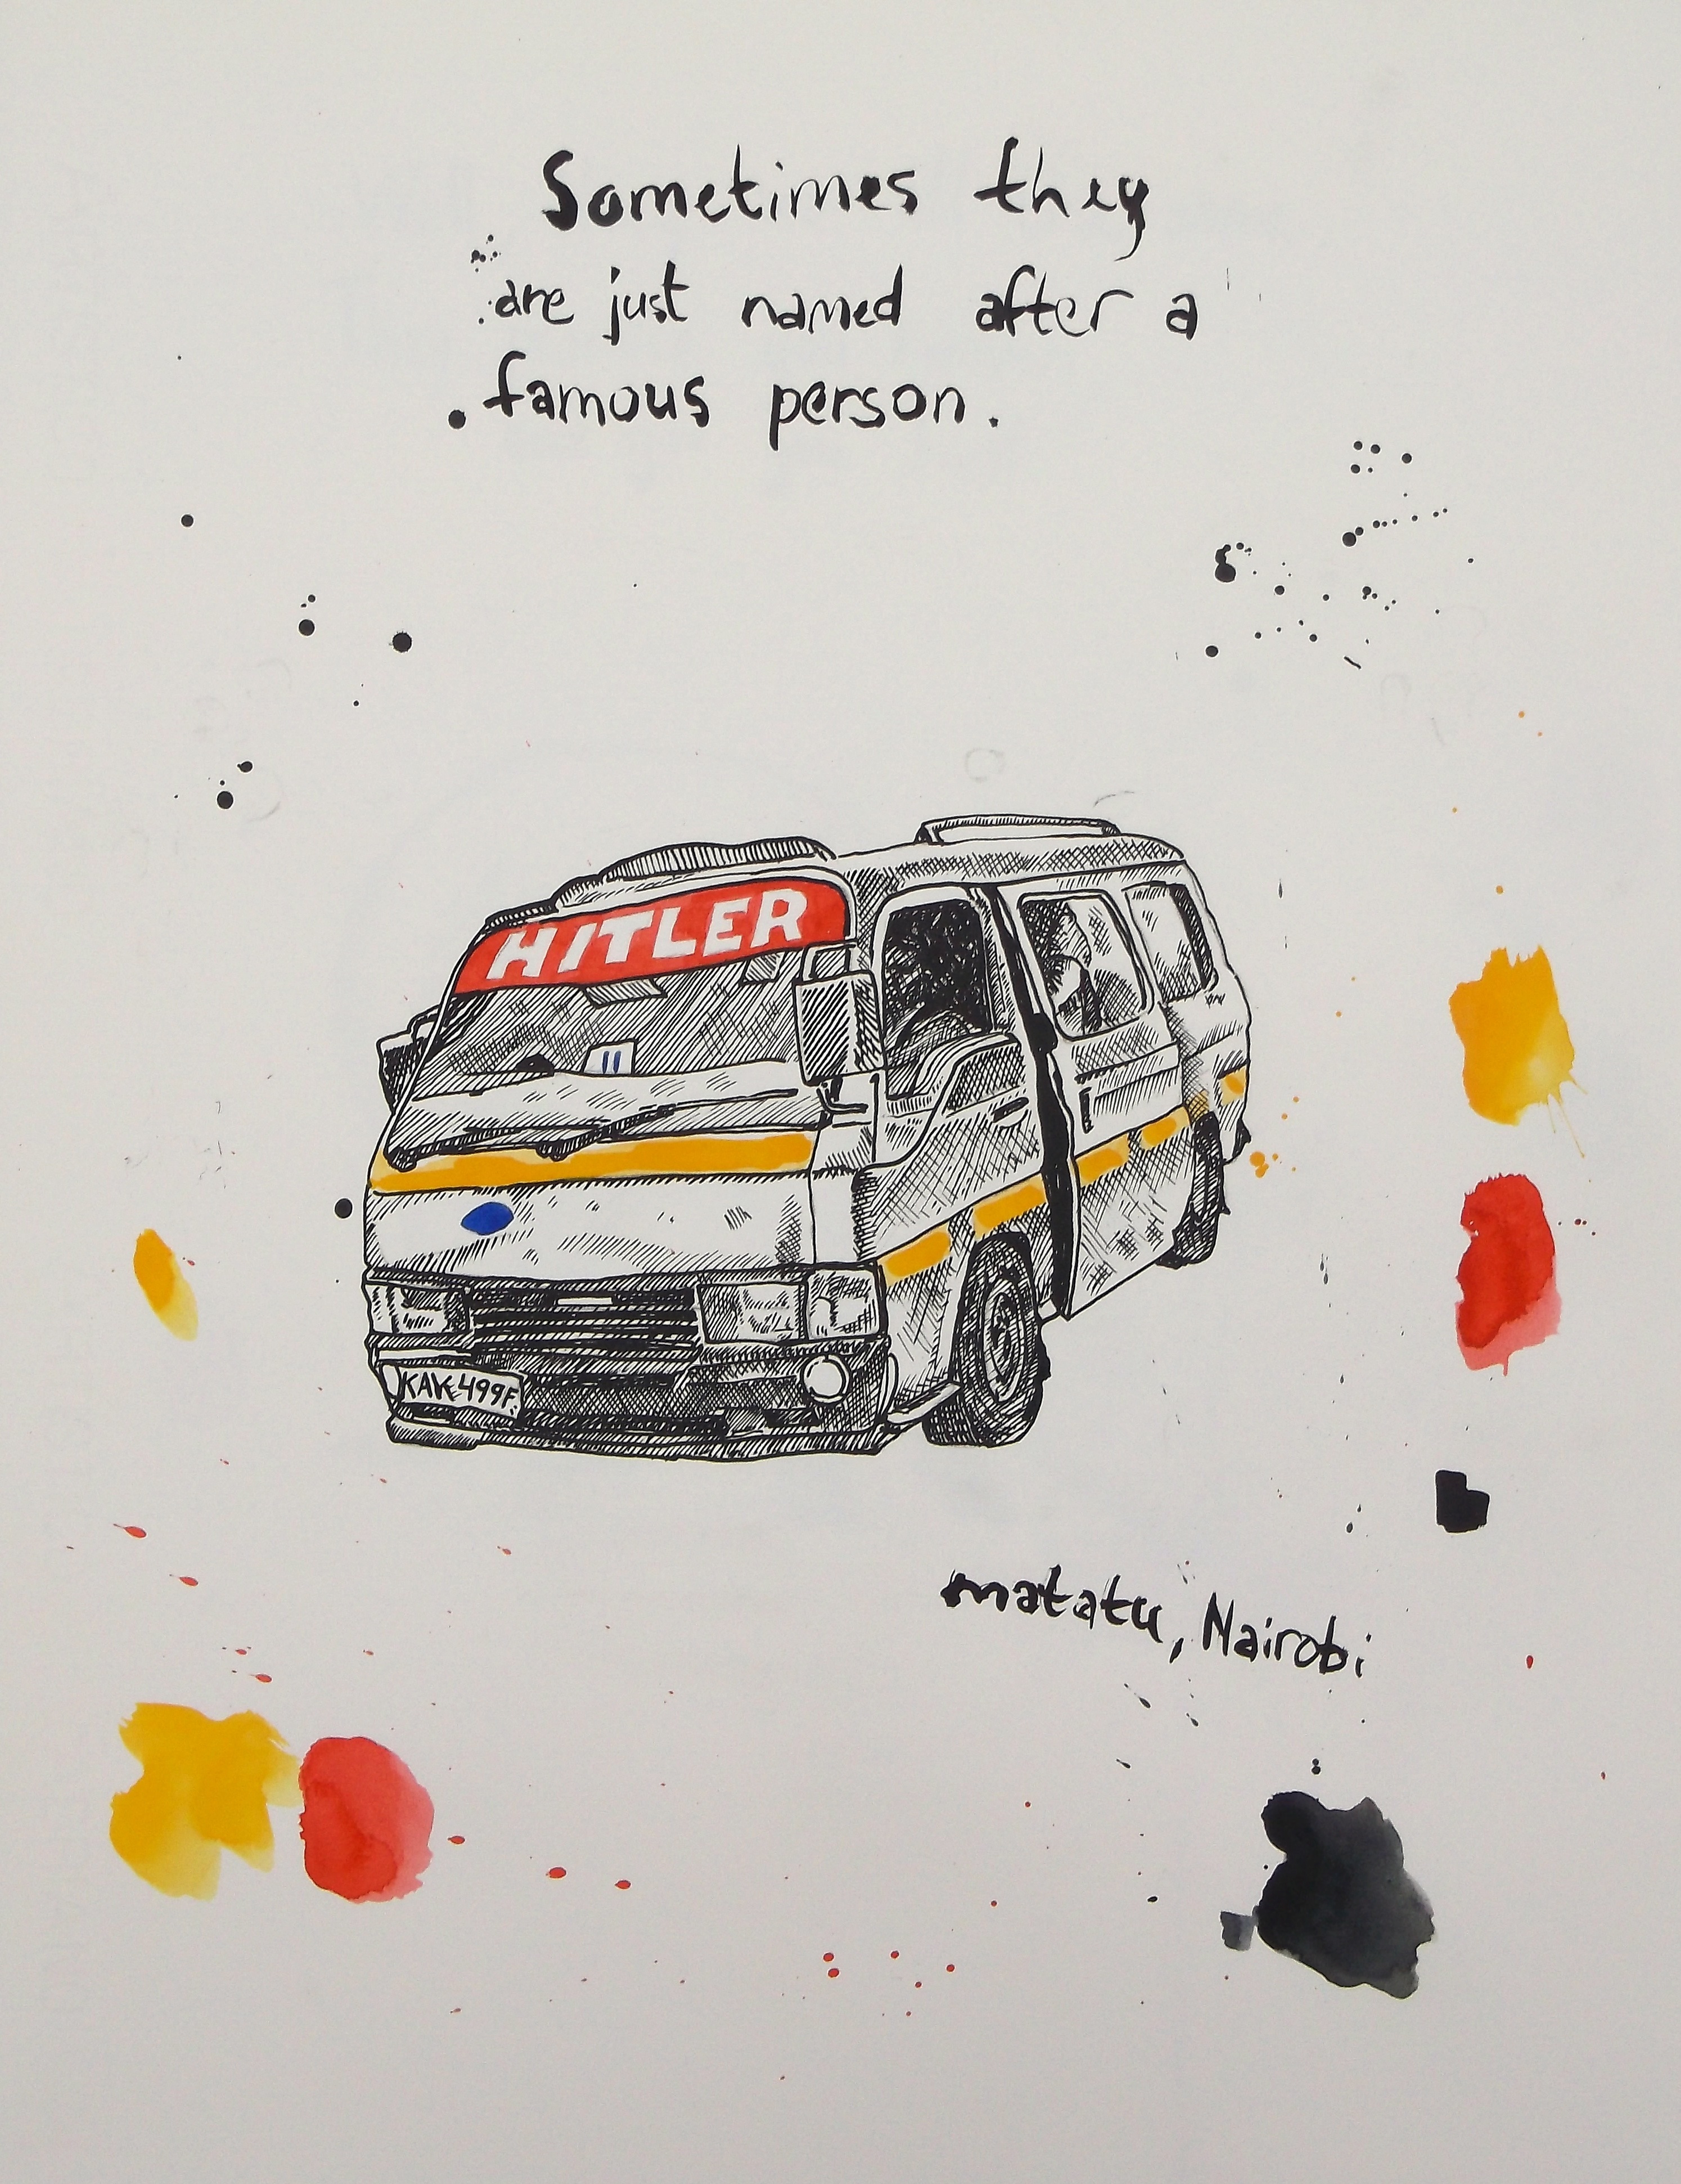 Sometimes they
are just named after a
famous person.
HITLER
KAK 499F.
matatu, Nairobi